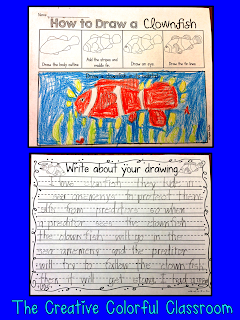 Name
How to Draw a Clownfish
Draw the body outline
Add the stripes and middle fin
Draw an eye
Draw the fin lines
Write about your drawing.
I love clownfish. They hide in
sea anemones to protect them
selfs from predators so when
a preditor sees the clownfish
the clownfish will go in the
sea anemone and the preditor
will try to follow the clownfish
then it will get
The Creative Colorful Classroom